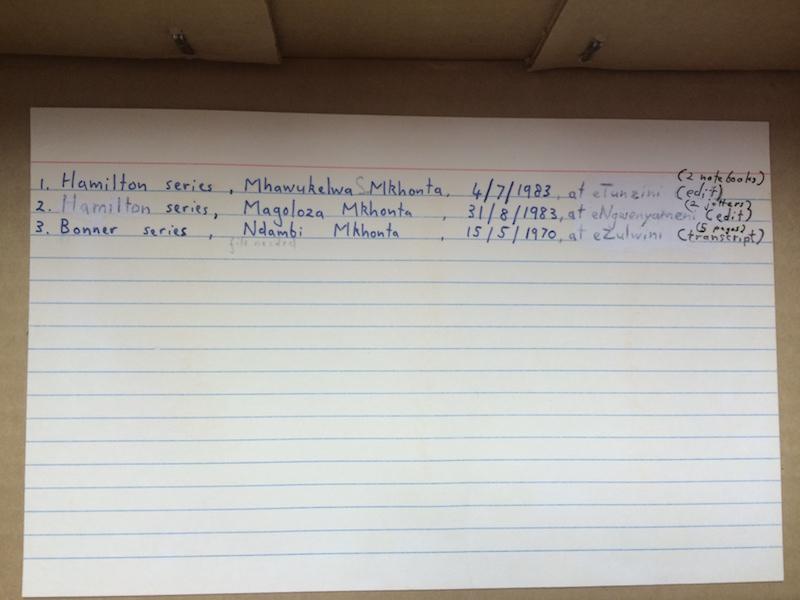 (2 notebooks)
1. Hamilton series, Mhawukelwa S. Mkhonta, 4/7/1983, at eTunzini (edit)
(2 jotters)
2. Hamilton series, Magoloza Mkhonta, 31/8/1983, at eNgwenyameni (edit)
(5 pages)
3. Bonner series, Ndambi Mkhonta, 15/5/1970, at eZulwini (transcript)
file needed